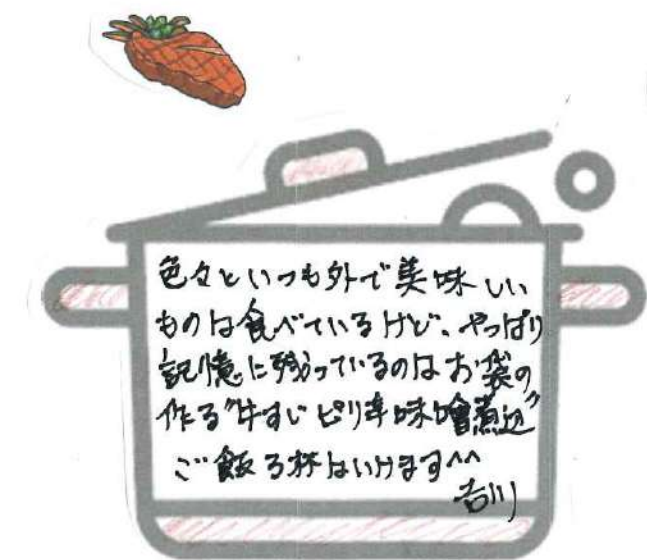 色々といつも外で美味しい
ものは食べているけど、やっぱり
記憶に残っているのはお袋の
作る"牛すじピリ辛味噌煮込"
ご飯3杯はいけます^^
吉川